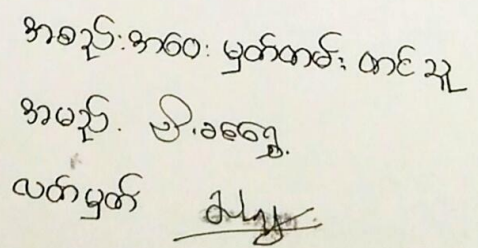 အစည်းအဝေး မှတ်တမ်း တင်သူ
အမည်.
လက်မှတ်